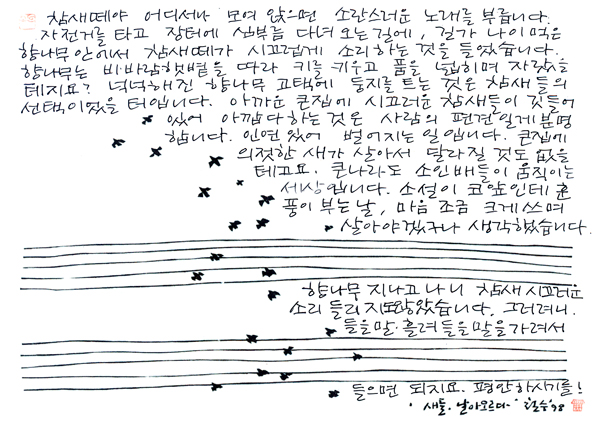 참새떼야 어디서나 모여 앉으면 소란스러운 노래를 부릅니다.
자전거를 타고 장터에 심부름 다녀오는 길에, 길가 나이먹은
향나무 안에서 참새떼가 시끄럽게 소리하는 것을 들었습니다.
향나무는 비·바람 햇볕을 따라 키를 키우고 품을 넓히며 자랐을
테지요? 넉넉해진 향나무 고택에 둥지를 트는 것은 참새들의
선택이었을 터입니다. 아까운 큰집에 시끄러운 참새들이 깃들어
있어 아깝다 하는 것은 사람의 편견일게 분명
합니다. 인연 있어 벌어지는 일입니다. 큰집에
의젓한 새가 살아서 달라질 것도 없을
테고요. 큰나라도 소인배들이 움직이는
세상입니다. 소설이 코앞인데 훈
풍이 부는 날, 마음 조금 크게 쓰며
살아야겠구나 생각했습니다.
향나무 지나고 나니 참새 시끄러운
소리 들리지도 않았습니다. 그러려니.
들을 말·흘려들을 말을 가려서
들으면 되지요. 평안하시기를!
새들·날아오르다· 철수 '98